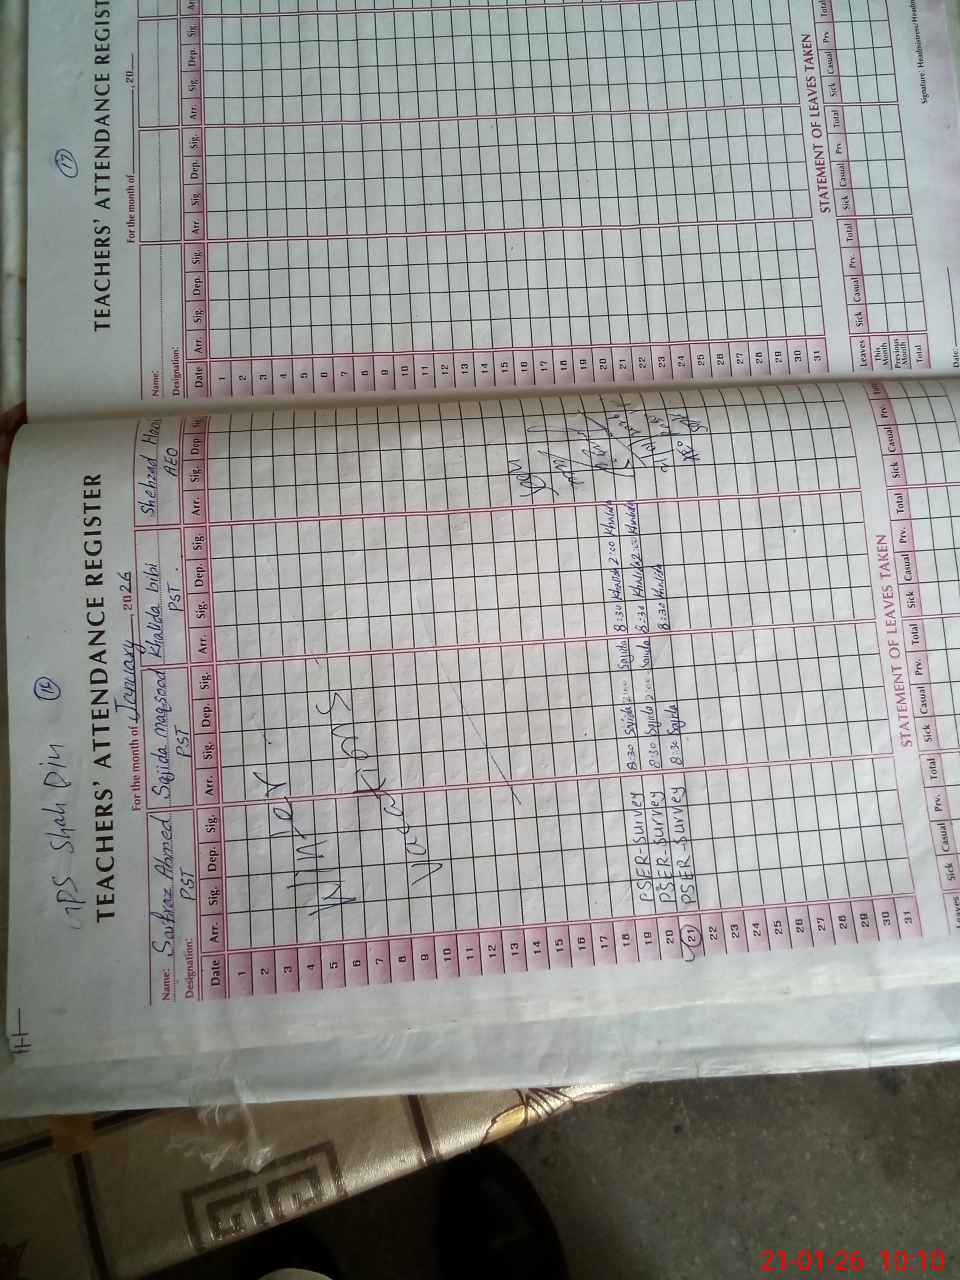 GPS Shah Din 16
TEACHERS' ATTENDANCE REGISTER
For the month of January, 2026
Name: Sarfraz Ahmed Sajida maqsood Khalida bibi Shehzad
Designation: PST PST PST. AEO
Date Arr. Sig. Dep. Sig. Arr. Sig. Dep. Sig. Arr. Sig. Dep. Sig. Arr. Sig. Dep
1
2
3
4
5
6
7
8
9
10
11
12
13
14
15
16
17
18
19 PSER-Survey 8:30 Sajida 2:00 Sajida 8:30 Khalida 2:00 Khalida
20 PSER-Survey 8:30 Sajida 2:00 Sajida 8:30 Khalida 2:00 Khalida
21 PSER-Survey 8:30 Sajida 8:30 Khalida
22
23
24
25
26
27
28
29
30
31
Winter
Vacations
STATEMENT OF LEAVES TAKEN
Leaves Sick Casual Prv. Total Sick Casual Prv. Total Sick Casual Prv. Total Sick Casual Prv.
17
TEACHERS' ATTENDANCE REGIST
For the month of , 20
Name:
Designation:
Date Arr. Sig. Dep. Sig. Arr. Sig. Dep. Sig. Arr. Sig. Dep. Sig.
1
2
3
4
5
6
7
8
9
10
11
12
13
14
15
16
17
18
19
20
21
22
23
24
25
26
27
28
29
30
31
STATEMENT OF LEAVES TAKEN
Leaves Sick Casual Prv. Total Sick Casual Prv. Total Sick Casual Prv. Total
This Month
Previous Month
Total
Date:
Signature: Headmistress/Headm
21-01-26 10:10